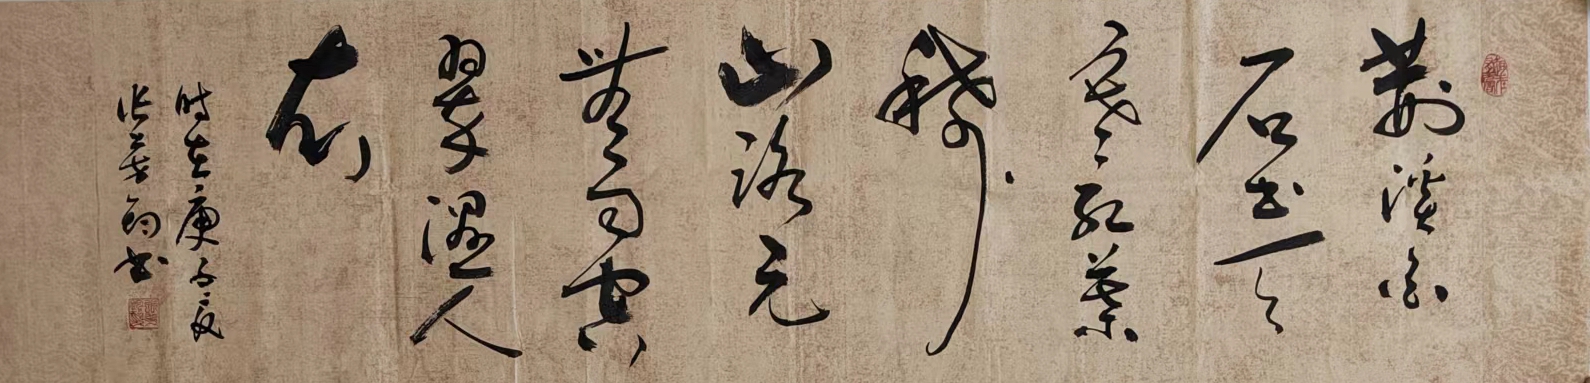 荆溪白
石出天
寒红叶
稀
山路元
无雨空
翠湿人
衣
时在庚子夏
书